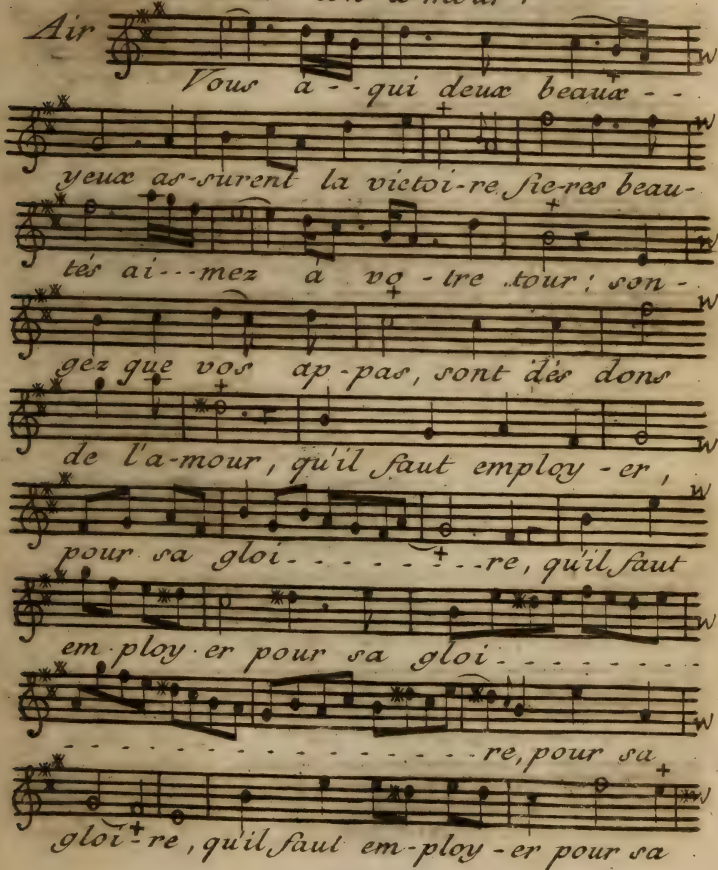 Air
Vous a--qui deux beaux--
yeux as-surent la victoi-re fie-res beau-
tés ai---mez à vo-tre tour: son-
gez que vos ap-pas, sont dés dons
de l'a-mour, qu'il faut employ-er,
pour sa gloi. . . . . . . . . re, qu'il faut
em-ploy-er pour sa gloi. . . . . . . . .
- - - - - - - - - - - - - - - - re, pour sa
gloi-re, qu'il faut em-ploy-er pour sa